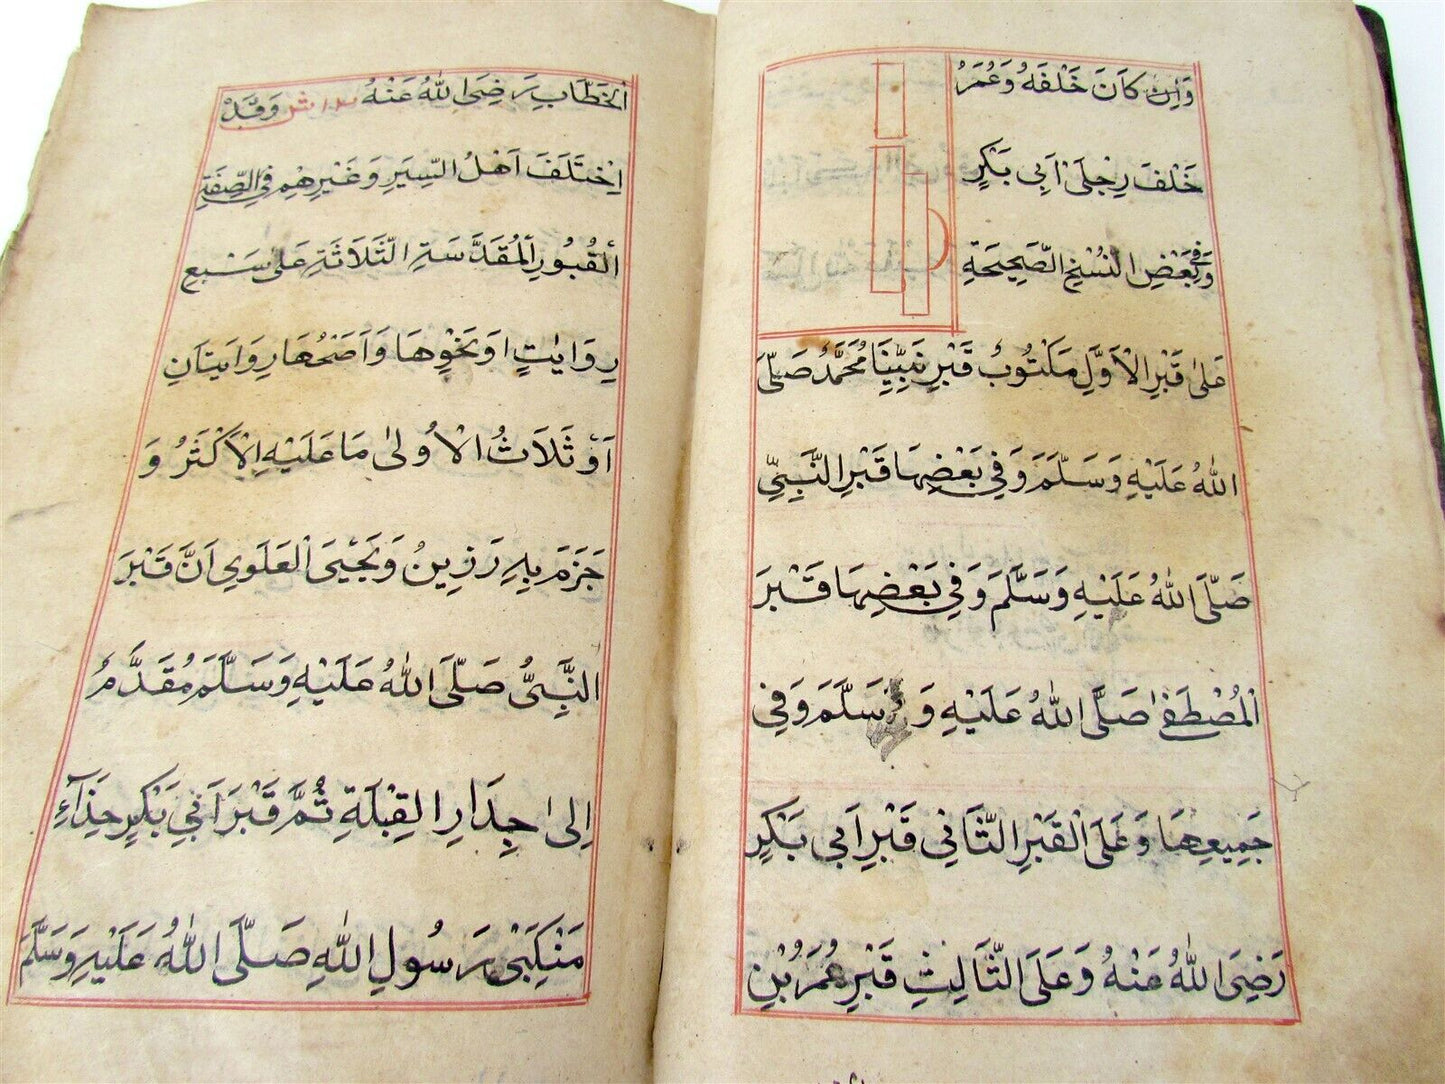 وَاِنْ كَانَ خَلْفَهُ وَعُمَرُ
خَلْفَ رِجْلَىْ اَبِى بَكْرٍ
وَفِى بَعْضِ النُّسَخِ الصَّحِيحَةِ
عَلىٰ قَبْرِ الْاَوَّلِ مَكْتُوبٌ قَبْرِ نَبِيِّنَا مُحَمَّدٌ صَلَّىَ
اللهُ عَلَيْهِ وَسَلَّمَ وَفِى بَعْضِهَا قَبْرِ النَّبِىِّ
صَلَّىَ اللهُ عَلَيْهِ وَسَلَّمَ وَفِى بَعْضِهَا قَبْرَ
الْمُصْطَفىٰ صَلَّى اللهُ عَلَيْهِ وَسَلَّمَ وَفِى
جَمِيعِهَا وَعَلَى الْقَبْرِ الثَّانِى قَبْرِ اَبِى بَكْرٍ
رَضِىَ اللهُ عَنْهُ وَعَلَى الثَّالِثِ قَبْرِ عُمَرُ بْنِ
الْخَطَّابِ رَضِىَ اللهُ عَنْهُ وَقَدْ
اِخْتَلَفَ اَهْلُ السِّيَرِ وَغَيْرِهِمْ فِى الصِّفَةِ
الْقُبُورِ الْمُقَدَّسَةِ الثَّلَاثَةِ عَلىٰ سَبْعِ
رِوَايَاتٍ اَوْ نَحْوِهَا وَاَصَحُّهَا رِوَايَتَانِ
اَوْ ثَلَاثُ الْاُولىٰ مَا عَلَيْهِ الْاَكْثَرُ وَ
جَزَمَ بِهِ رَزِينُ وَيَحْيَىَ الْعَلَوِى اَنَّ قَبْرَ
النَّبِىُّ صَلَّىَ اللهُ عَلَيْهِ وَسَلَّمَ مُقَدَّمٌ
اِلىٰ جِدَارِ الْقِبْلَةِ ثُمَّ قَبْرَ اَبِى بَكْرٍ حِذَآءِ
مَنْكِبَىْ رَسُولِ اللهِ صَلَّى اللهُ عَلَيْهِ وَسَلَّمَ